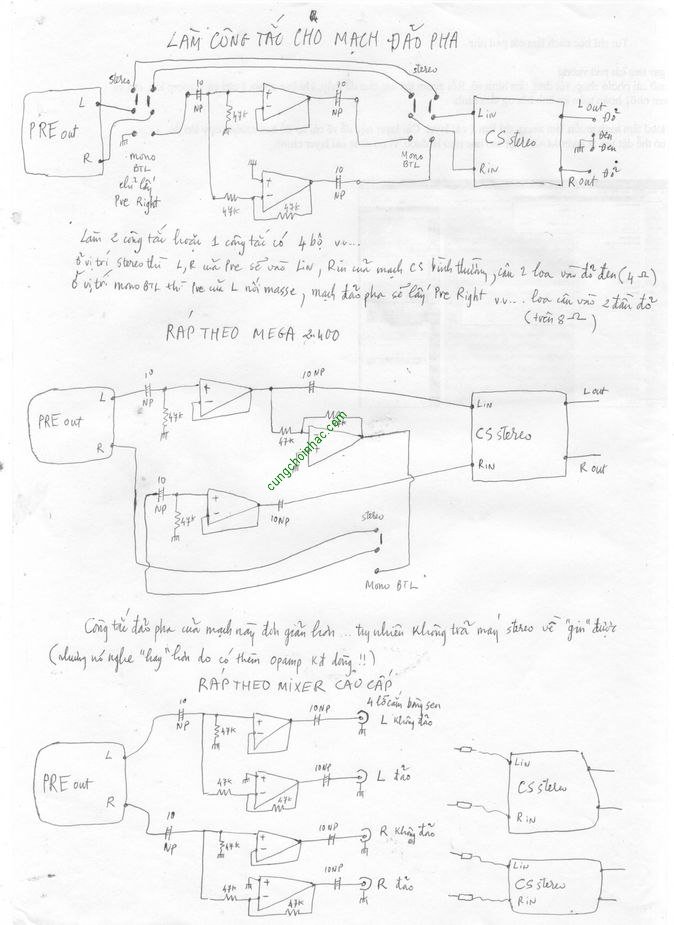 LÀM CÔNG TẮC CHO MẠCH ĐẢO PHA
stereo
stereo
10
NP
47K
10
NP
PRE out
L
R
mono
BTL
chỉ lấy
Pre Right
47K
47K
10
NP
Mono
BTL
Lin
Rin
CS stereo
L out
Đỏ
Đen
Đen
Đỏ
R out
Làm 2 công tắc hoặc 1 công tắc có 4 bộ v.v...
Ở vị trí stereo thì L, R của Pre sẽ vào Lin, Rin của mạch CS bình thường, câu 2 loa vào đỏ đen (4Ω)
Ở vị trí mono BTL thì Pre của L nối masse, mạch đảo pha sẽ lấy Pre Right v.v... loa câu vào 2 đầu đỏ
(trên 8Ω)
RÁP THEO MEGA 2400
PRE out
L
R
10
NP
47K
10NP
47K
47K
10
NP
47K
10NP
Lin
Rin
CS stereo
L out
R out
stereo
Mono BTL
cungchoinhac.com
Công tắc đảo pha của mạch này đơn giản hơn ... tuy nhiên không trả máy stereo về "gin" được
(nhưng nó nghe "hay" hơn do có thêm Opamp K đ dòng !!)
RÁP THEO MIXER CAO CẤP
PRE out
L
R
10
NP
47K
10NP
4 lỗ cắm bông sen
L không đảo
47K
47K
10NP
L đảo
10
NP
47K
10NP
R không đảo
47K
47K
10NP
R đảo
Lin
Rin
CS stereo
Lin
Rin
CS stereo